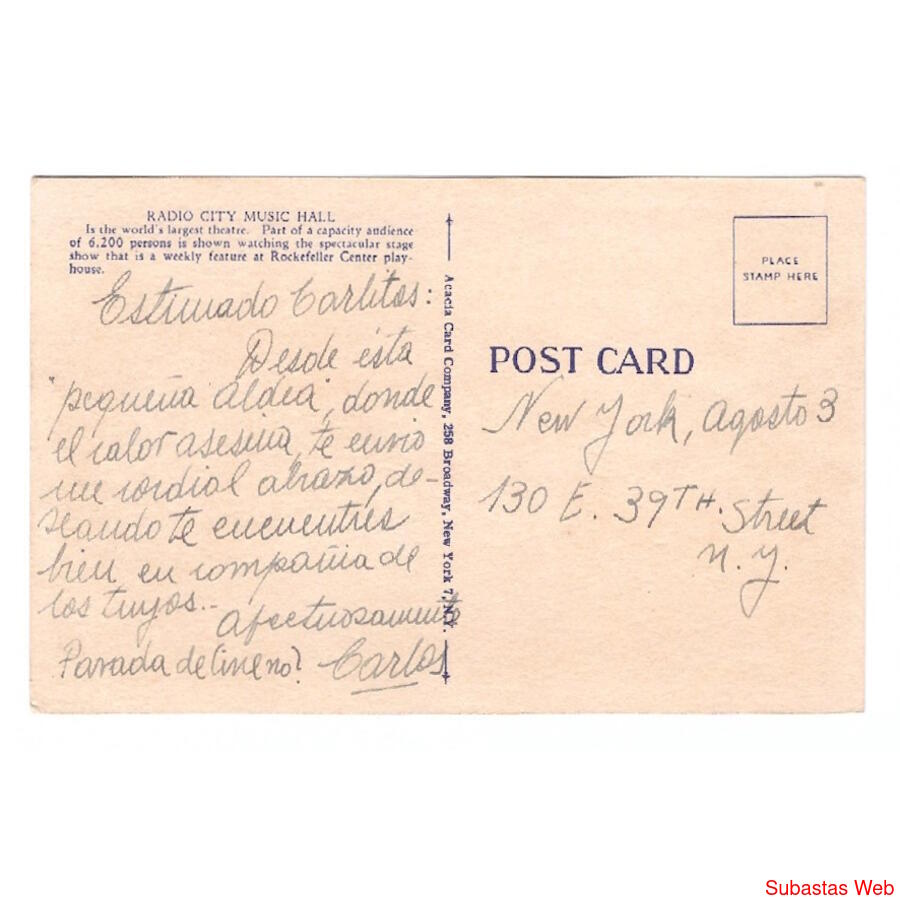 RADIO CITY MUSIC HALL
Is the world's largest theatre. Part of a capacity audience
of 6,200 persons is shown watching the spectacular stage
show that is a weekly feature at Rockefeller Center play-
house.
Estimado Carlitos:
Desde ésta
"pequeña aldea", donde
el calor asesina, te envio
un cordial abrazo, de-
seando te encuentres
bien en compañia de
los tuyos.-
Afectuosamente
Carlos
Parada de
Acacia Card Company, 258 Broadway, New York 7, N.Y.
PLACE
STAMP HERE
POST CARD
New York, Agosto 3
130 E. 39TH. Street
N. Y.
Subastas Web